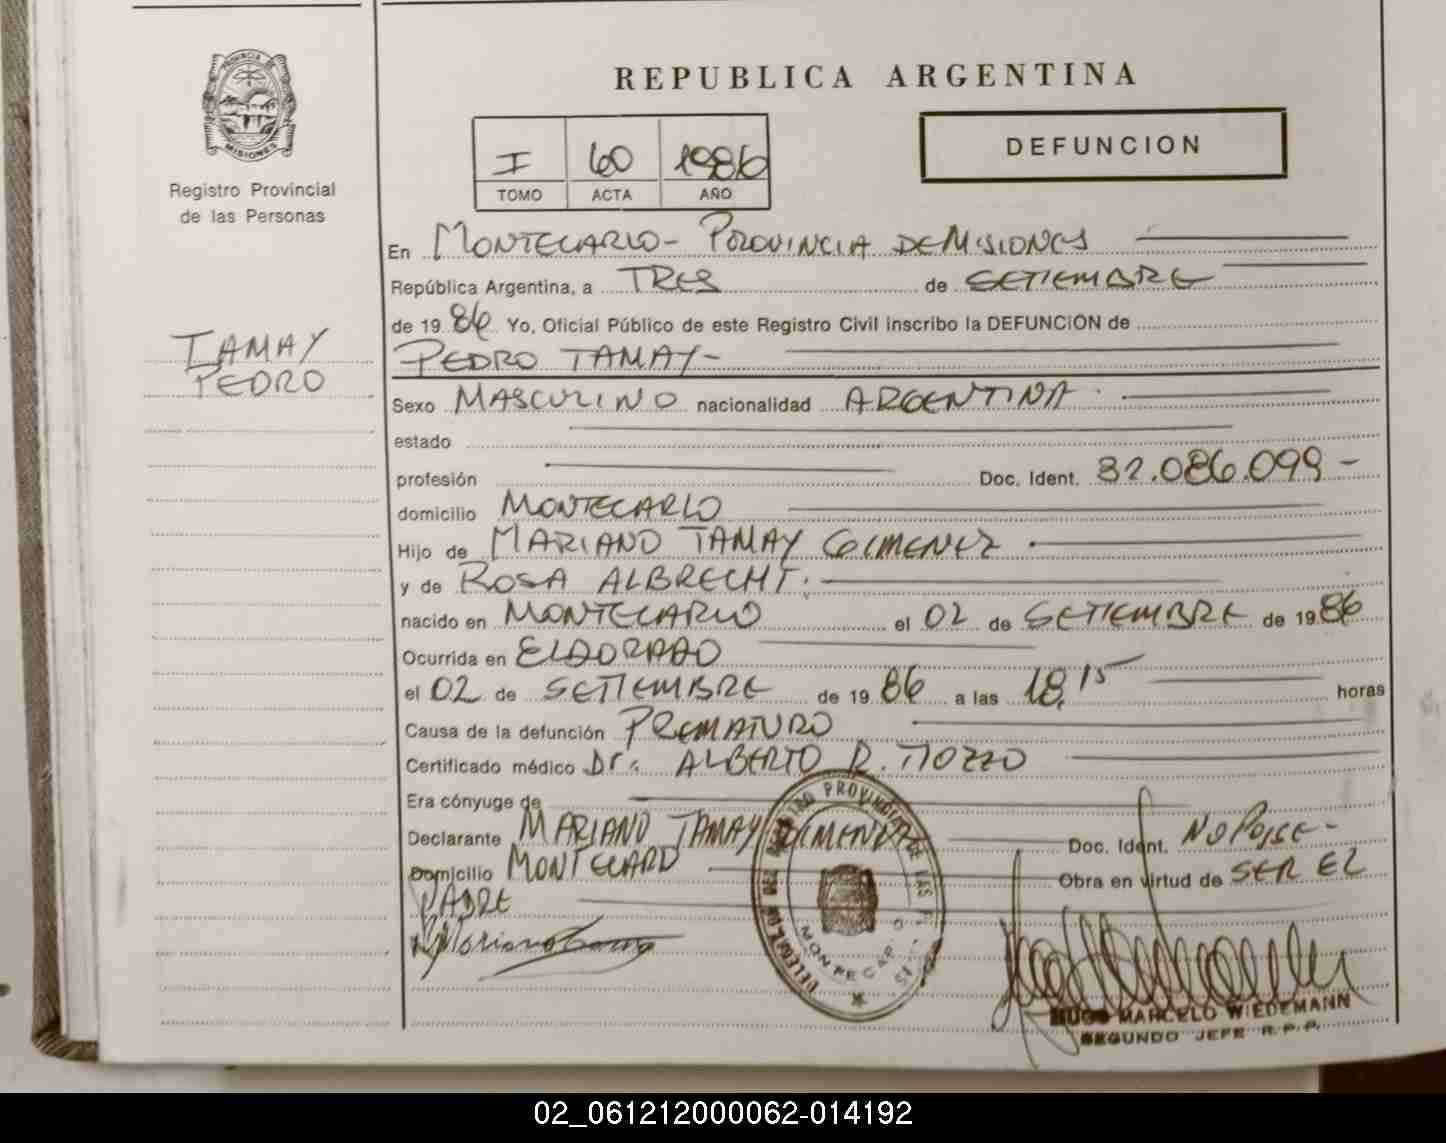 PROVINCIA DE
MISIONES
Registro Provincial
de las Personas
TAMAY
PEDRO
REPUBLICA ARGENTINA
I 60 1986
TOMO ACTA AÑO
DEFUNCION
En MONTECARLO- PROVINCIA DE MISIONES
República Argentina, a TRES de SETIEMBRE
de 19 86 Yo, Oficial Público de este Registro Civil inscribo la DEFUNCION de
PEDRO TAMAY-
Sexo MASCULINO nacionalidad ARGENTINA
estado
profesión Doc. Ident. 32.086.099-
domicilio MONTECARLO
Hijo de MARIANO TAMAY GIMENEZ
y de ROSA ALBRECHT.
nacido en MONTECARLO el 02 de SETIEMBRE de 19 86
Ocurrida en ELDORADO
el 02 de SETIEMBRE de 19 86 a las 18,15 horas
Causa de la defunción PREMATURO
Certificado médico Dr. ALBERTO R. TIOZZO
Era cónyuge de
Declarante MARIANO TAMAY GIMENEZ Doc. Ident. NO POSE-
Domicilio MONTECARLO Obra en virtud de SER EL
PADRE
HUGO MARCELO WIEDEMANN
SEGUNDO JEFE R.P.P.
02_061212000062-014192